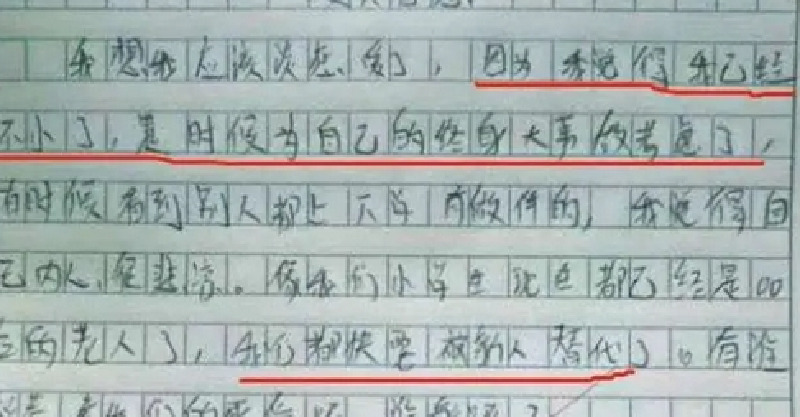 我想我应该谈恋爱了,因为我觉得我已经
不小了,是时候为自己的终身大事做考虑了,
有时候看到别人都上下学有做伴的,我觉得自
己内心很悲凉。像我们小学生现在都已经是00
后的老人了,我们都快要被新人替代了。有谁